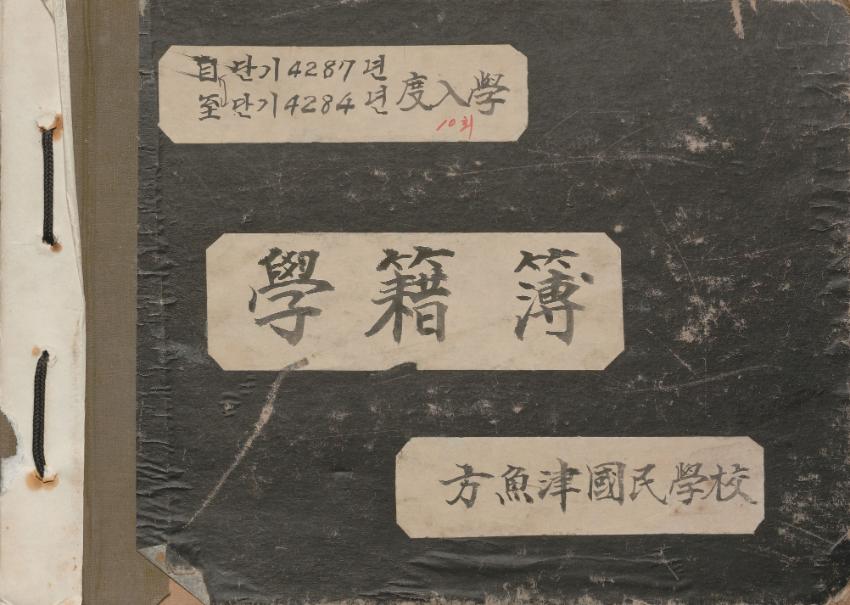 自 단기 4287 년
至 단기 4284 년 度入學
10회
學籍簿
方魚津國民學校